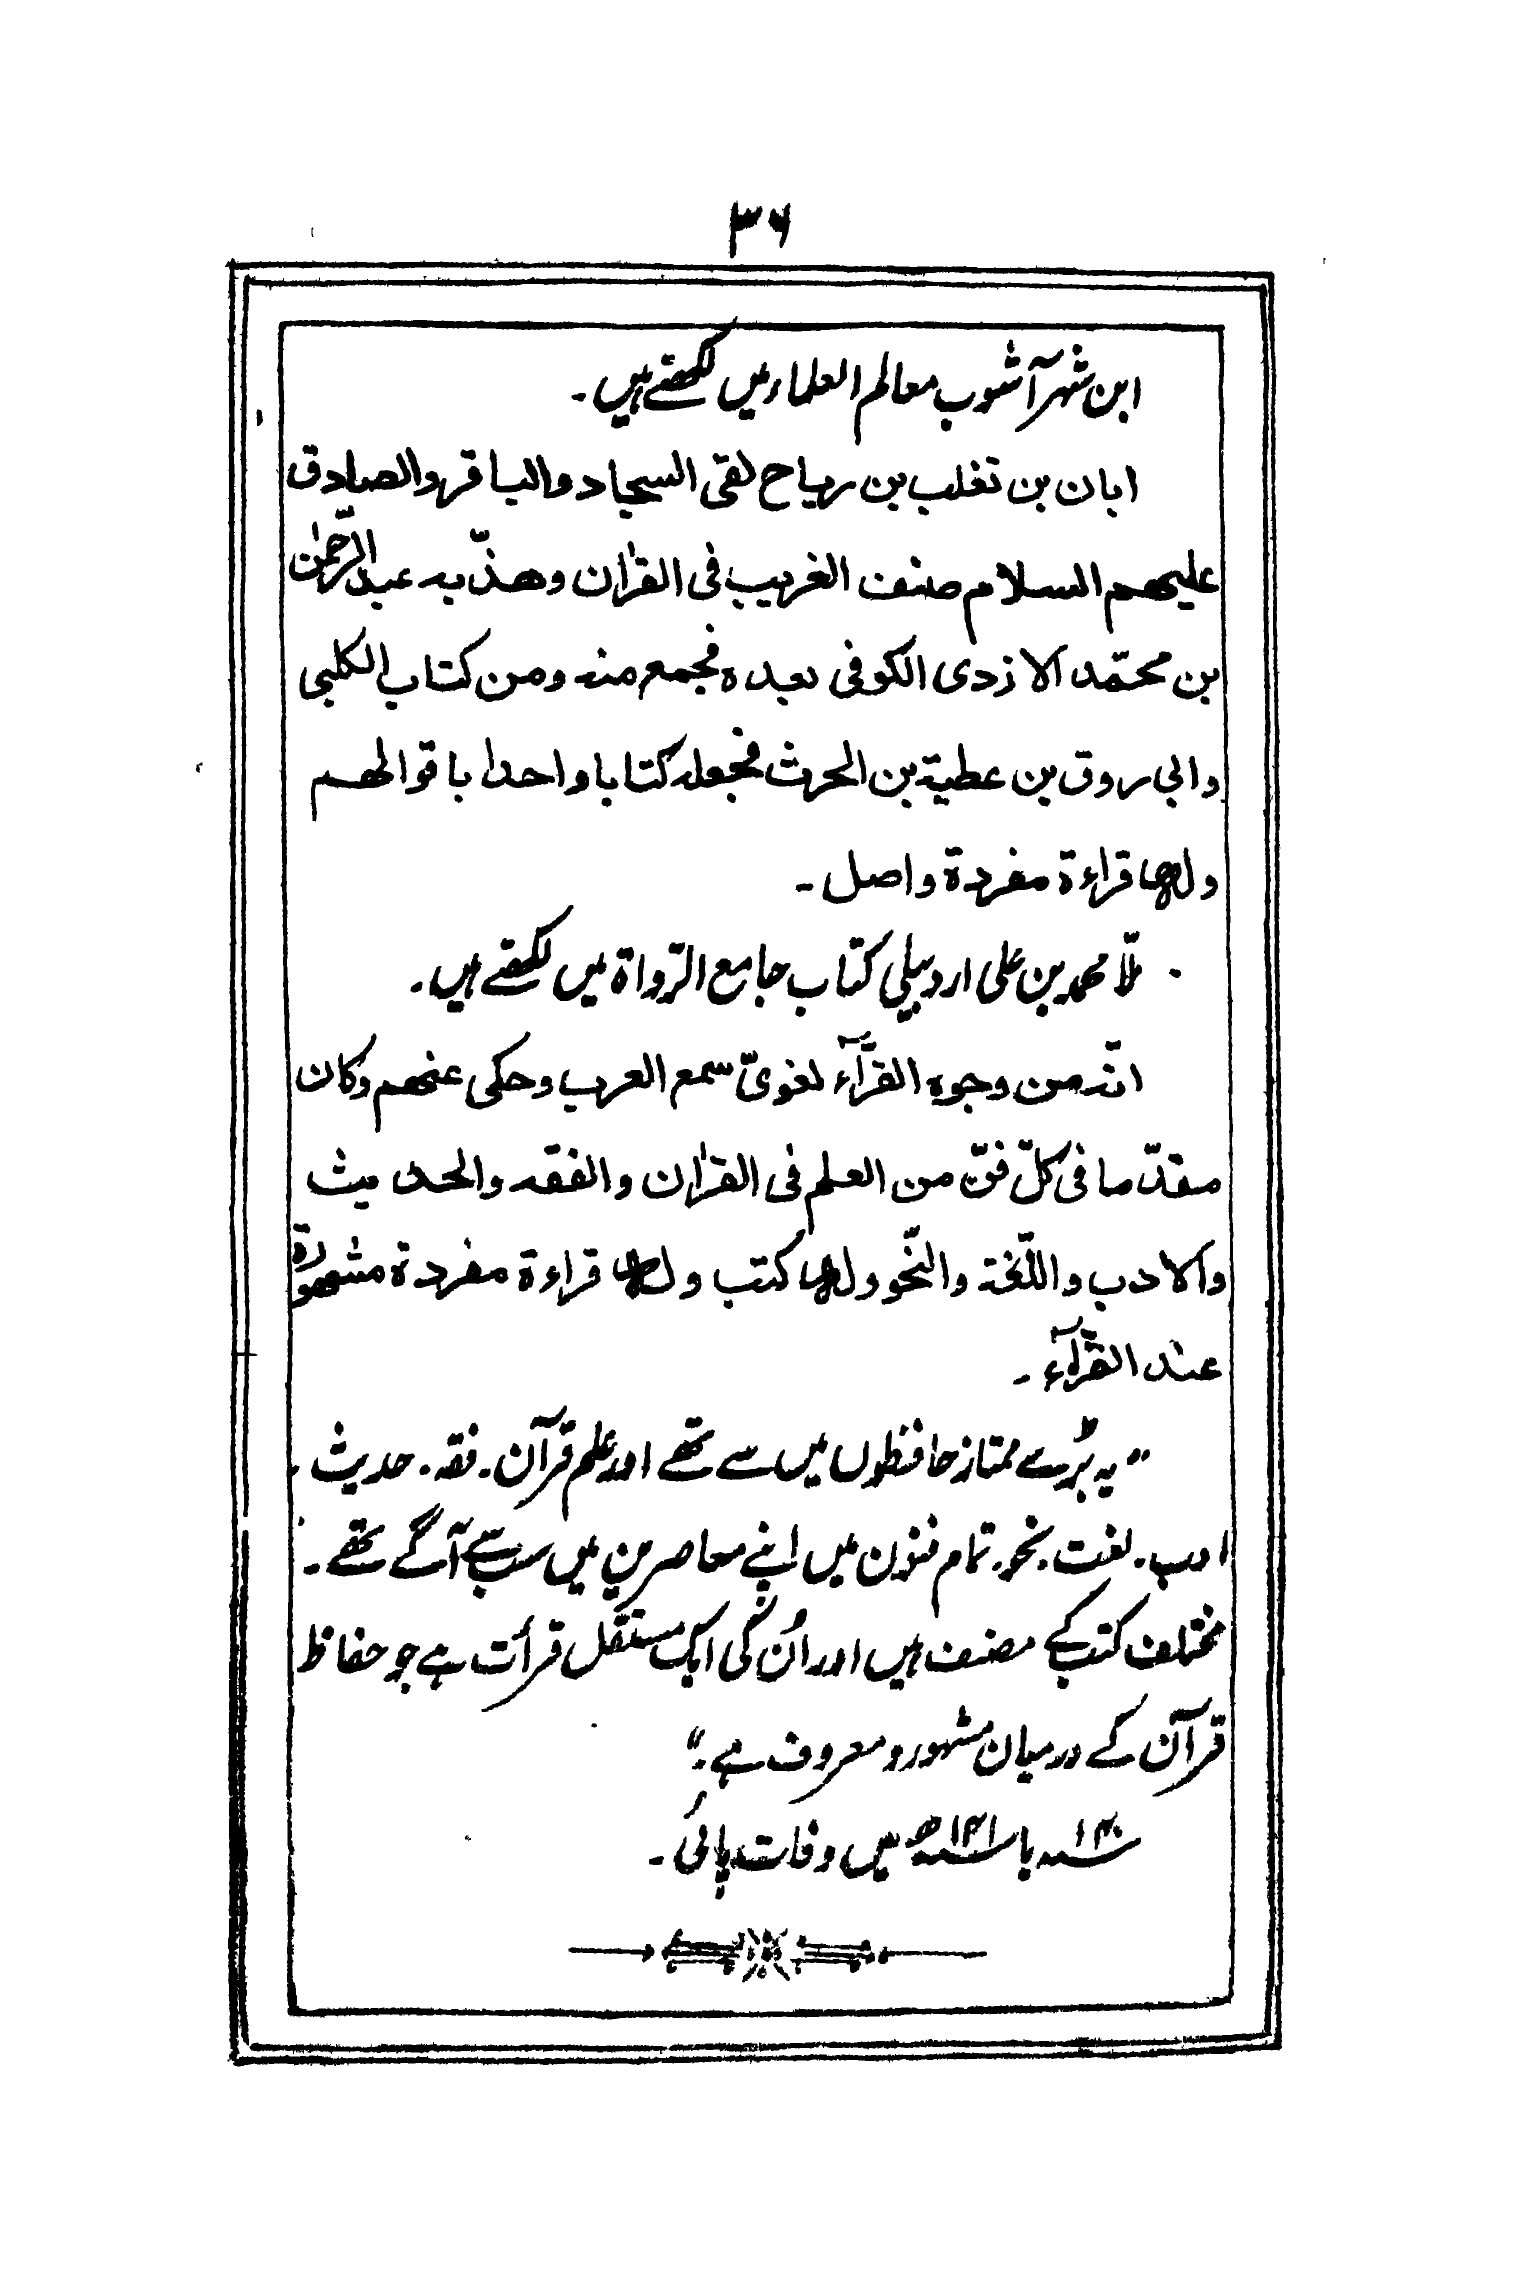 ۳۶
ابن شہر آشوب معالم العلماء میں لکھتے ہیں۔
ابان بن تغلب بن رباح لقی السجاد والباقر والصادق
علیھم السلام صنف الغریب فی القراٰن وھذّبہ عبد الرّحمٰن
بن محمّد الازدی الکوفی بعدہ فجمع منہ ومن کتاب الکلبی
وابی روق بن عطیۃ بن الحرث فجعلہ کتابا واحدا باقوالھم
ولھا قراءۃ مفردۃ واصل۔
ملّا محمد بن علی اردبیلی کتاب جامع الرّواۃ میں لکھتے ہیں۔
انّہ من وجوہ القرّآء لغویّ سمع العرب وحکی عنھم وکان
مقدّما فی کلّ فنّ من العلم فی القراٰن والفقہ والحدیث
والادب واللّغۃ والنّحو ولھا کتب ولھا قراءۃ مفردۃ مشھورۃ
عند القرّآء۔
"یہ بڑے ممتاز حافظوں میں سے تھے اور علم قرآن۔ فقہ۔ حدیث۔
ادب۔ لغت۔ نحو۔ تمام فنون میں اپنے معاصرین میں سب سے آگے تھے۔
مختلف کتب کے مصنف ہیں اور اُن کی ایک مستقل قرأت ہے جو حفاظ
قرآن کے درمیان مشہور و معروف ہے۔"
۱۴۰؁ یا ۱۴۱؁ھ میں وفات پائی۔